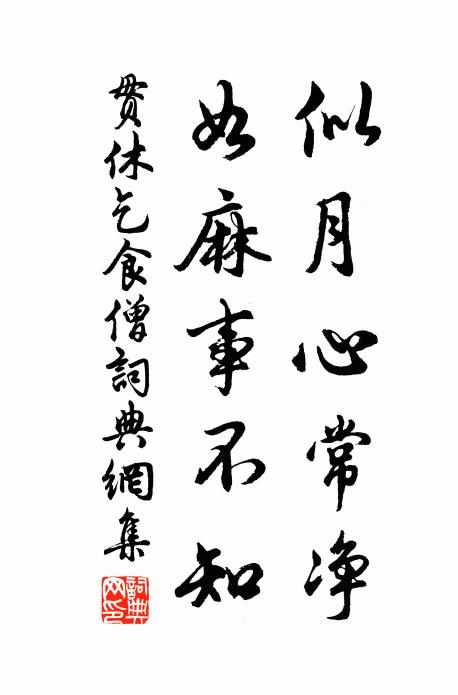 似月心常净
如麻事不知
贯休乞食僧詞典網集
詞典網印